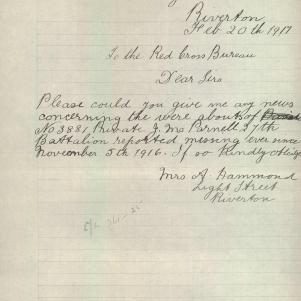 Riverton
Feb 20th 1917
To the Red Cross Bureau
Dear Sirs
Please could you give me any news
concerning the were abouts of
No 3881 Private J. Mc Parnell 37th
Battalion reported messing ever since
November 5th 1916. If so kindly oblidge
Mrs A. Hammond
Light Street
Riverton